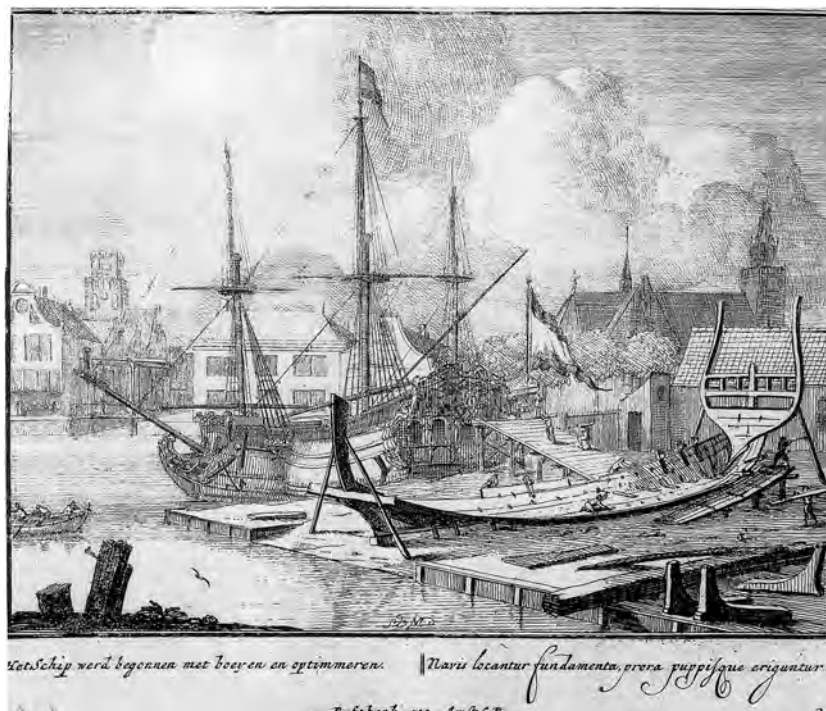 Het Schip werd begonnen met boeyen en optimmeren.
Navis locantur fundamenta, prora puppisque eriguntur